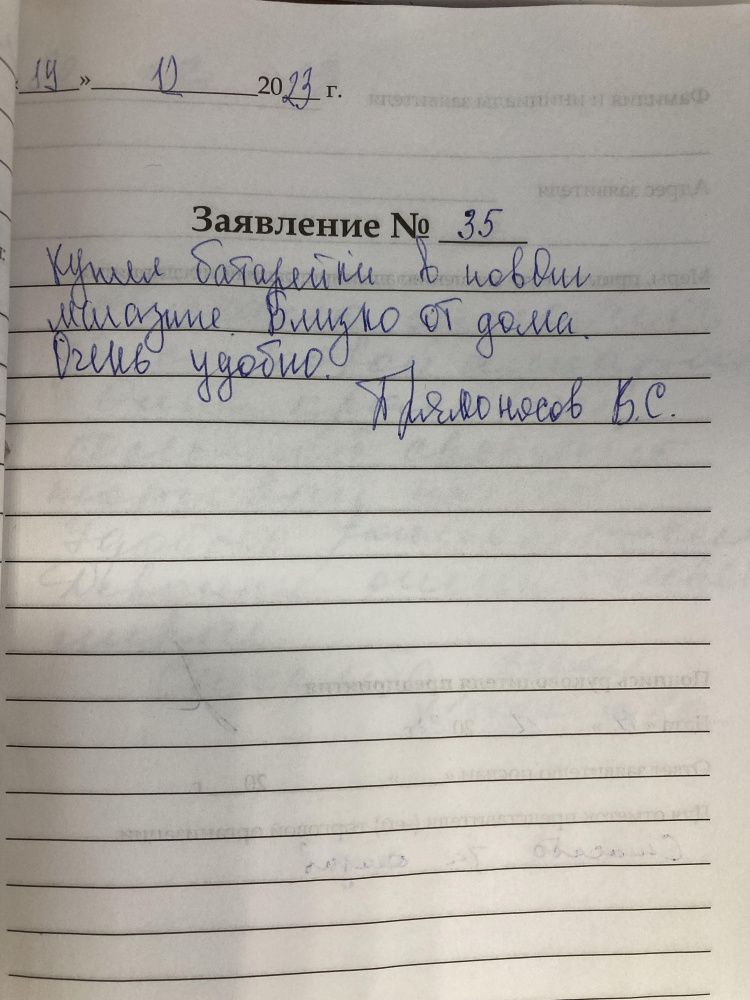 «19» 12 2023 г.
Заявление № 35
Купил батарейки в новом
магазине. Близко от дома.
Очень удобно.
Прямоносов В.С.